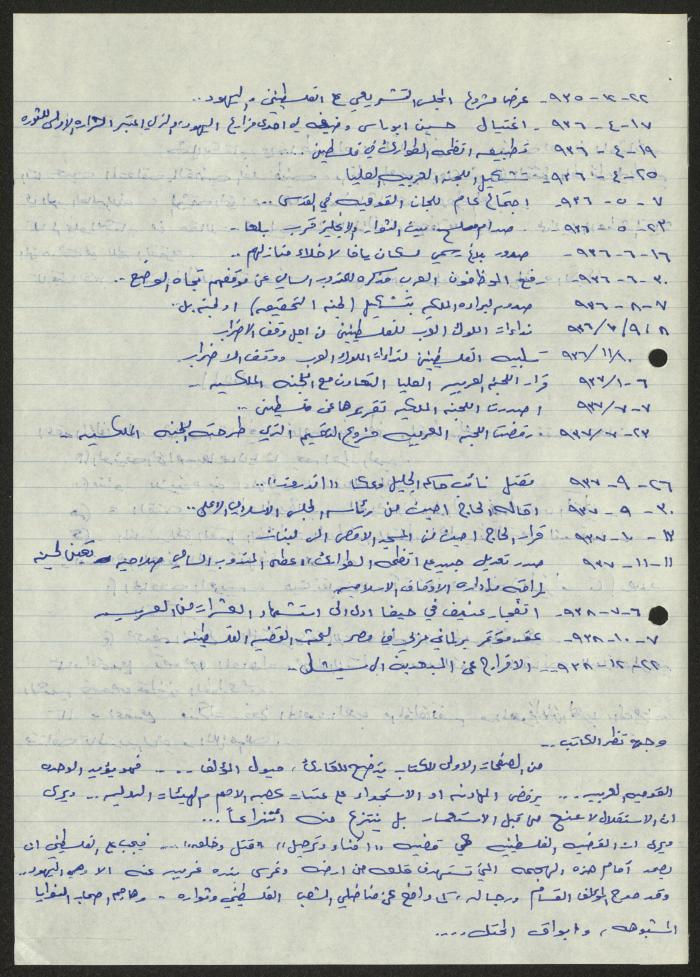 ٢٢-٣-٩٣٥- عرض مشروع المجلس التشريعي ع الفلسطينيين واليهود..
١٧-٤-٩٣٦- اغتيال حسين ابو راس في احدى مزارع اليهود، والذي اعتبر الشراره الاولى للثوره
١٩-٤-٩٣٦- تطبيق انظمة الطوارئ في فلسطين..
٢٥-٤-٩٣٦- تشكيل اللجنه العربيه العليا.
٧-٥-٩٣٦- اجتماع عام للجان القوميه في القدس...
٢٣-٥-٩٣٦- صدام مسلح بين الثوار والانجليز قرب بلعا..
١٦-٦-٩٣٦- صدور بلاغ رسمي لسكان يافا لاخلاء منازلهم..
٣٠-٦-٩٣٦- رفع الموظفون العرب مذكره للمندوب السامي عن موقفهم تجاه الوضع..
٧-٨-٩٣٦ صدور اراده الملكيه بتشكيل (لجنة التحقيق) او لجنة بيل.
نداءات الملوك العرب للفلسطينيين من اجل وقف الاضراب
٩٣٦/١١/٨ تلبيه الفلسطينيين لنداءات الملوك العرب ووقف الاضراب.
٦-٩٣٧/١ قرار اللجنه العربيه العليا التعاون مع اللجنه الملكيه..
٧-٩٣٧/٧ اصدرت اللجنه الملكيه تقريرها عن فلسطين..
٢٣-٩٣٧/٧ رفضت اللجنه العربيه مشروع التقسيم الذي طرحته اللجنه الملكيه..
٢٦-٩-٩٣٧ مقتل نائب حاكم الجليل وعكا "اندروز"..
٣٠-٩-٩٣٧ اقالة الحاج امين من رئاسة المجلس الاسلامي الاعلى..
١٣-١٠-٩٣٧ فرار الحاج امين من المسجد الاقصى الى لبنان
١١-١١-٩٣٧ صدر تعديل جديد على انظمة الطوارئ، اعطى المندوب السامي صلاحيه تعين لجنة
لمراقبة وادارة الاوقاف الاسلاميه
٦-٧-٩٣٨ انفجار عنيف في حيفا ادى الى استشهاد العشرات من العرب
٧-١٠-٩٣٨- عقد مؤتمر برلماني عربي في مصر لبحث القضيه الفلسطينيه.
٢٢-١٢-٩٣٨- الافراج عن المبعدين الى سيشل..
وجهة نظر الكاتب..
من الصفحات الاولى للكتاب يتوضح للقارئ، ميول المؤلف.... فهو يؤيد الوحده
القوميه العربيه... يرفض المهادنه او الاستجداء على عتبات عصبه الامم والهيئات الدوليه.. ويرى
ان الاستقلال لا يمنح من قبل الاستعمار بل ينتزع منه انتزاعاً...
ويرى ان القضيه الفلسطينيه هي قضيه "افناء وترحيل" "قتل وخلع"... فيجب على الفلسطيني ان
يصمد امام هذه الهجمه التي تستهدف قلعه من ارضه وغرس بذره غريبه عنه الا وهي اليهود..
وقد مدح المؤلف القسام ورجاله، كما دافع عن مناضلي الشعب الفلسطيني وثواره - وهاجم اصحاب النوايا
المشبوهه، وابواق المحتل....